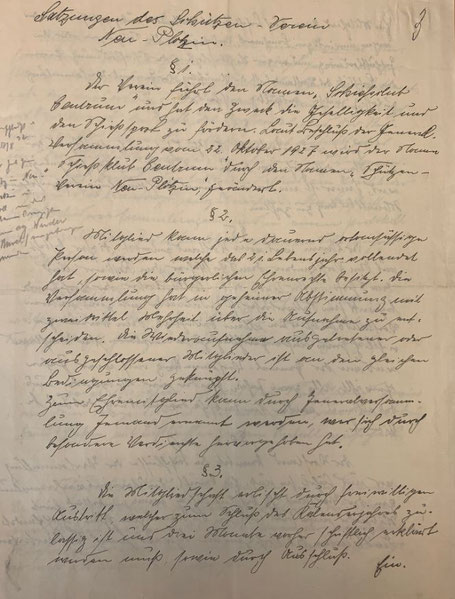 3
Satzungen des Schützen-Verein
Neu-Plötzin.
§ 1.
Der Verein führt den Namen „Schießclub
Centrum" und hat den Zweck die Geselligkeit und
den Schießsport zu fördern. Laut Beschluß der General-
Versammlung vom 22. Oktober 1927 wird der Name
Schießklub Centrum durch den Namen „Schützen-
Verein Neu-Plötzin, geändert.
§ 2.
Mitglied kann jede dauernd ortsansässige
Person werden welche das 21. Lebensjahr vollendet
hat, sowie die bürgerlichen Ehrenrechte besitzt. Die
Versammlung hat in geheimer Abstimmung mit
zweidrittel Mehrheit über die Aufnahme zu ent-
scheiden. Die Wiederaufnahme ausgetretener oder
ausgeschlossener Mitglieder ist an den gleichen
Bedingungen geknüpft.
Zum Ehrenmitglied kann durch Generalversamm-
lung Jemand ernannt werden, wer sich durch
besondere Verdienste hervorgehoben hat.
§ 3.
Die Mitgliedschaft erlischt durch freiwilligen
Austritt welcher zum Schluß des Kalenderjahres zu-
lässig ist und drei Monate vorher schriftlich erklärt
werden muß sowie durch Ausschluß.
Ein.